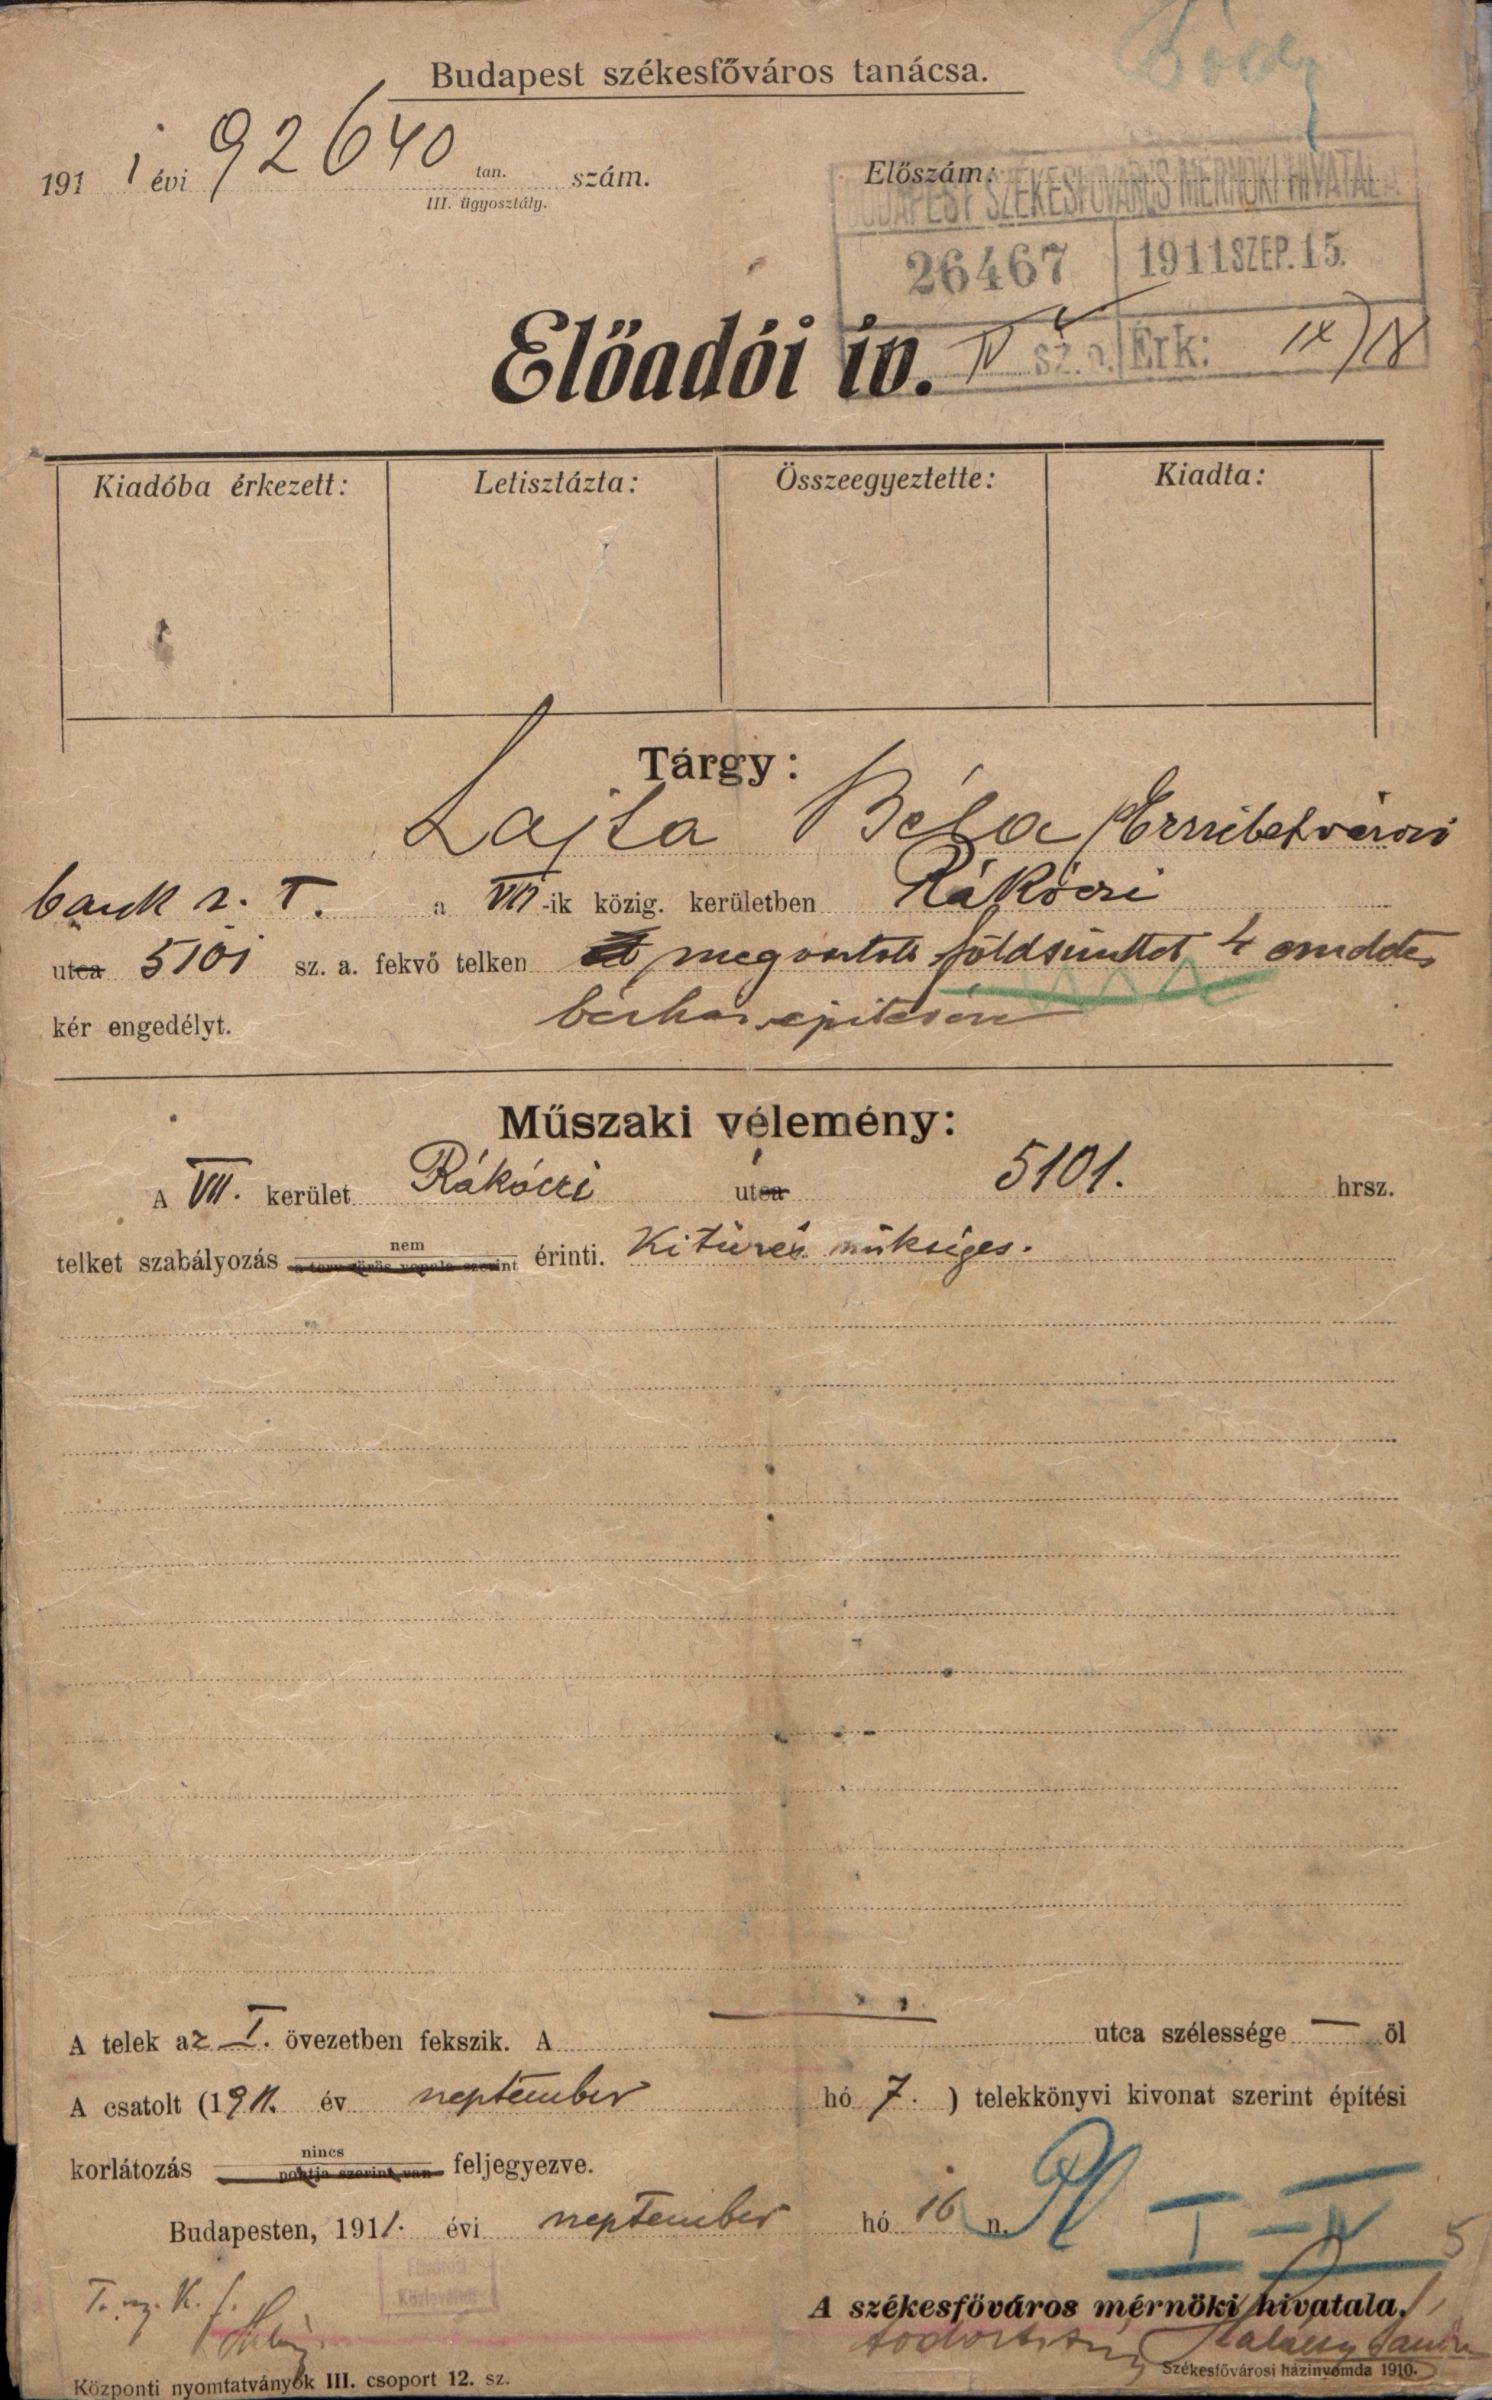 Budapest székesfőváros tanácsa.
1911 évi 92640 tan. szám.
III. ügyosztály.
Előszám:
BUDAPEST SZÉKESFŐVÁROS MÉRNÖKI HIVATALA
26467 1911 SZEP. 15.
IV sz. o. Érk: IX/18
Előadói ív.
Kiadóba érkezett: Letisztázta: Összeegyeztette: Kiadta:
Tárgy:
Lajta Béla Erzsébetvárosi
bank r. T. a VII-ik közig. kerületben Rákóczi
utca 5101 sz. a. fekvő telken földszintet 4 emeletes
kér engedélyt. bérház építésére
Műszaki vélemény:
A VII. kerület Rákóczi utca 5101. hrsz.
telket szabályozás nem érinti. Kitűzés szükséges.
a terv vörös vonala szerint
A telek az I. övezetben fekszik. A — utca szélessége — öl
A csatolt (1911. év szeptember hó 7. ) telekkönyvi kivonat szerint építési
korlátozás nincs feljegyezve.
pontja szerint van
Budapesten, 1911. évi szeptember hó 16 n.
I-IV
5
Fővárosi
Közlevéltár
A székesfőváros mérnöki hivatala.
Központi nyomtatványok III. csoport 12. sz.
Székesfővárosi házinyomda 1910.